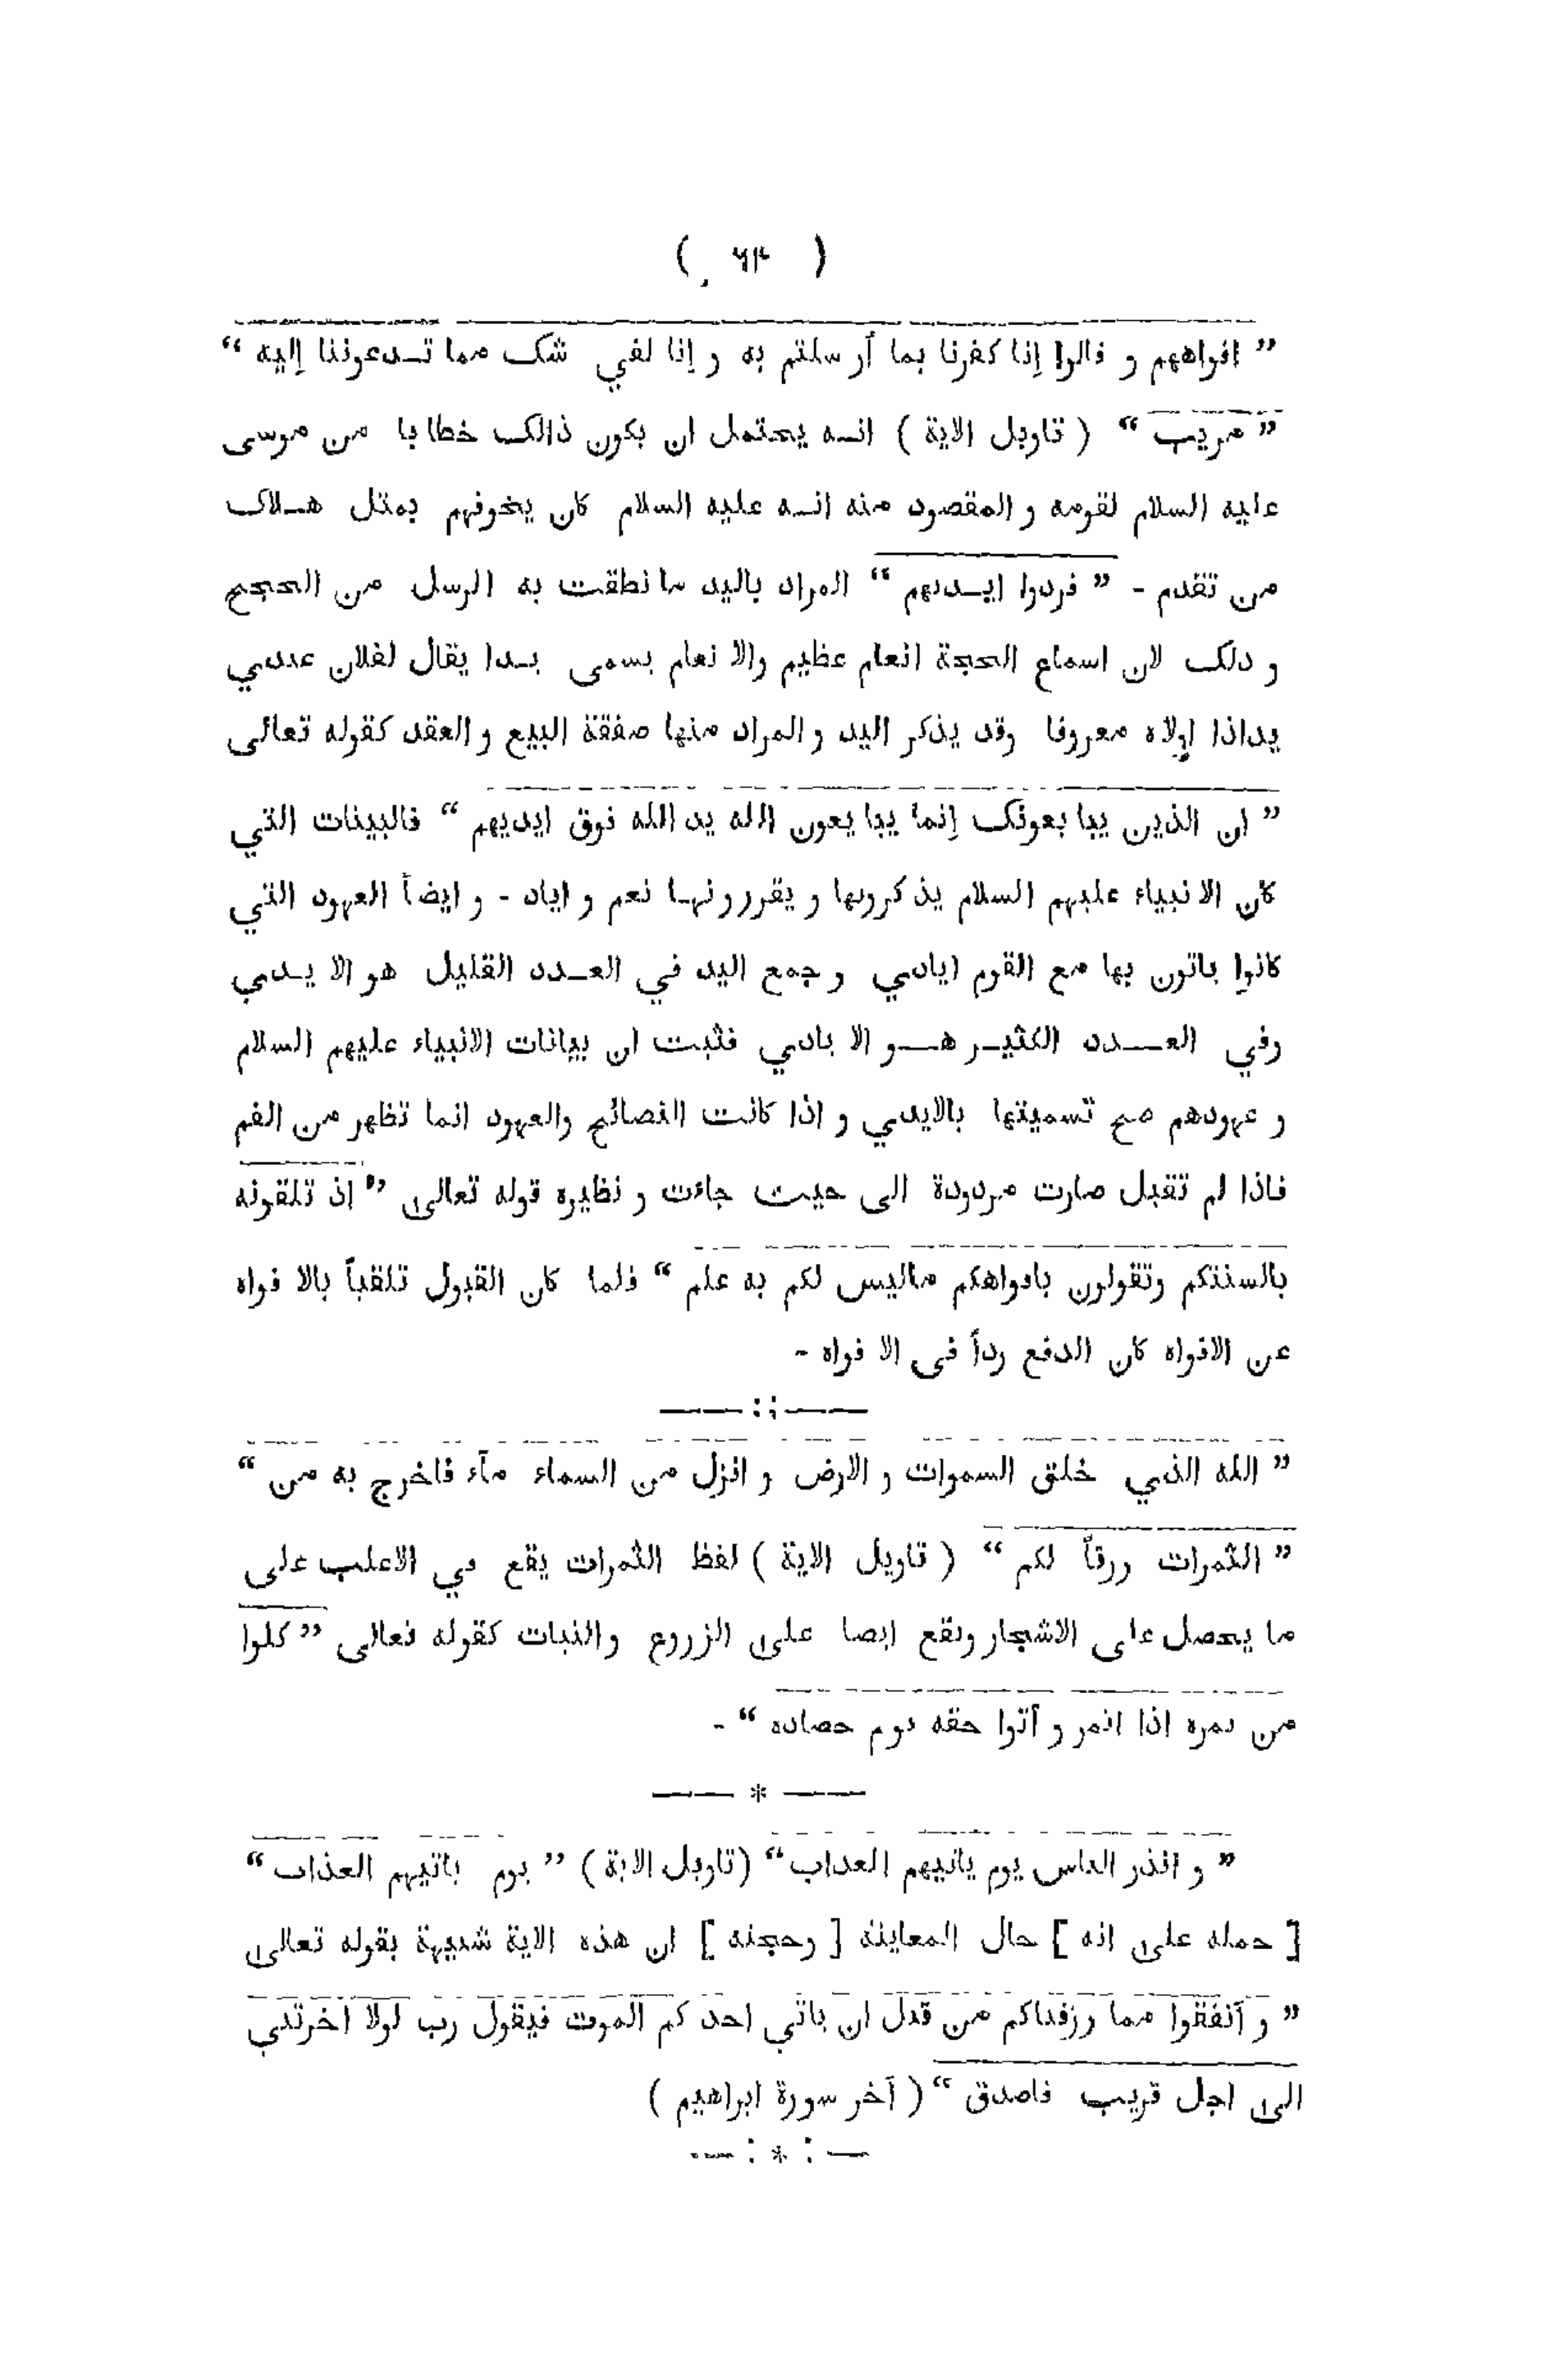 ( ٦٣ )
” افواههم و قالوا إنا كفرنا بما أرسلتم به و إنا لفي شك مما تـدعوننا إليه “
” مريب “ ( تاويل الاية ) انـه يحتمل ان يكون ذالك خطابا من موسى
عليه السلام لقومه و المقصود منه انـه عليه السلام كان يخوفهم بمثل هـلاك
من تقدم - ” فردوا ايـديهم “ المراد باليد ما نطقت به الرسل من الحجج
و ذلك لان اسماع الحجة انعام عظيم والانعام يسمى يـدا يقال لفلان عندي
يد اذا اولاه معروفا وقد يذكر اليد و المراد منها صفقة البيع و العقد كقوله تعالى
” ان الذين يبايعونك إنما يبايعون الله يد الله فوق ايديهم “ فالبينات التي
كان الانبياء عليهم السلام يذكرونها و يقررونهـا نعم و اياد - و ايضاً العهود التي
كانوا ياتون بها مع القوم ايادي و جمع اليد في العـدد القليل هو الايـدي
وفي العــدد الكثيـر هــو الايادي فثبت ان بيانات الانبياء عليهم السلام
و عهودهم صح تسميتها بالايدي و اذا كانت النصائح والعهود انما تظهر من الفم
فاذا لم تقبل صارت مردودة الى حيث جاءت و نظيره قوله تعالى ” اذ تلقونه
بالسنتكم وتقولون بافواهكم ماليس لكم به علم “ فلما كان القبول تلقياً بالافواه
عن الافواه كان الدفع رداً فى الافواه -
” الله الذي خلق السموات و الارض و انزل من السماء مآء فاخرج به من “
” الثمرات رزقاً لكم “ ( تاويل الاية ) لفظ الثمرات يقع في الاغلب على
ما يحصل على الاشجار ويقع ايضا على الزروع والنبات كقوله تعالى ” كلوا
من ثمره اذا اثمر و آتوا حقه يوم حصاده “ -
” و انذر الناس يوم ياتيهم العذاب “ (تاويل الاية ) ” يوم ياتيهم العذاب “
[ حمله على انه ] حال المعاينة [ وحجته ] ان هذه الاية شبيهة بقوله تعالى
” و آنفقوا مما رزقناكم من قبل ان ياتي احدكم الموت فيقول رب لولا اخرتني
الى اجل قريب فاصدق “ ( آخر سورة ابراهيم )